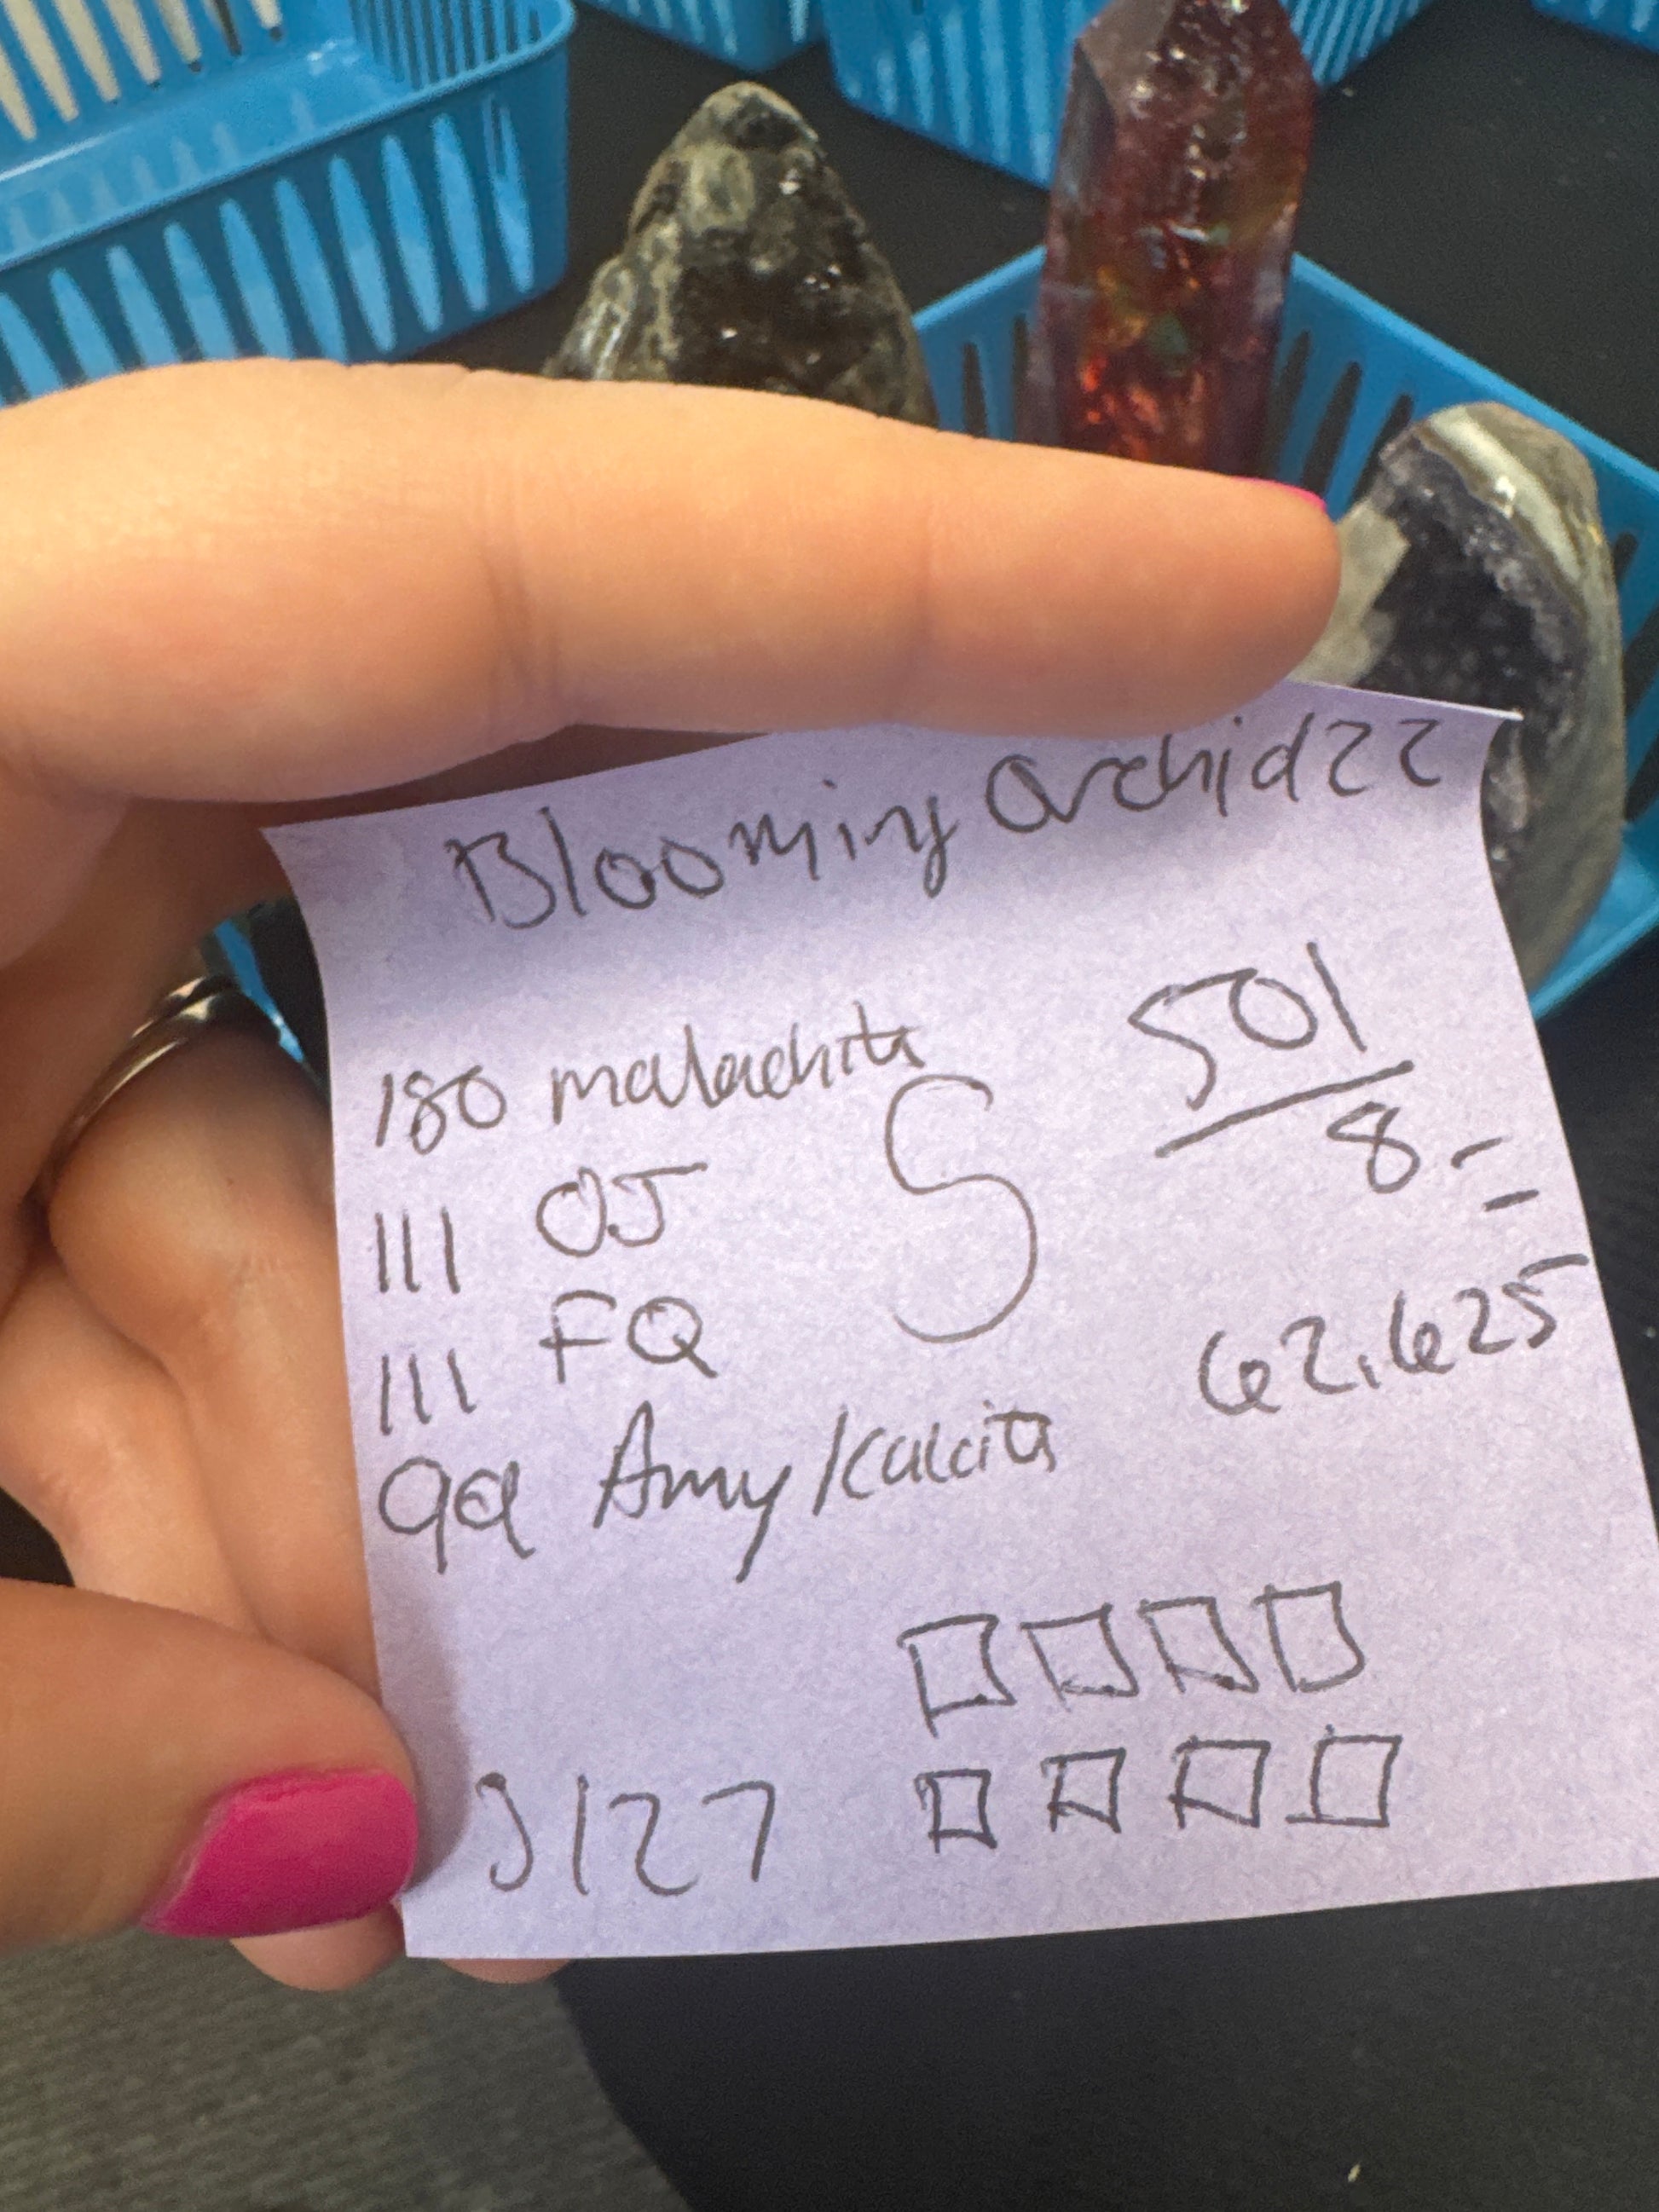 Blooming Orchid22
180 malachite
111 OJ
111 FQ
99 Amy/Calcite
S
501
8 =
62.625
3127